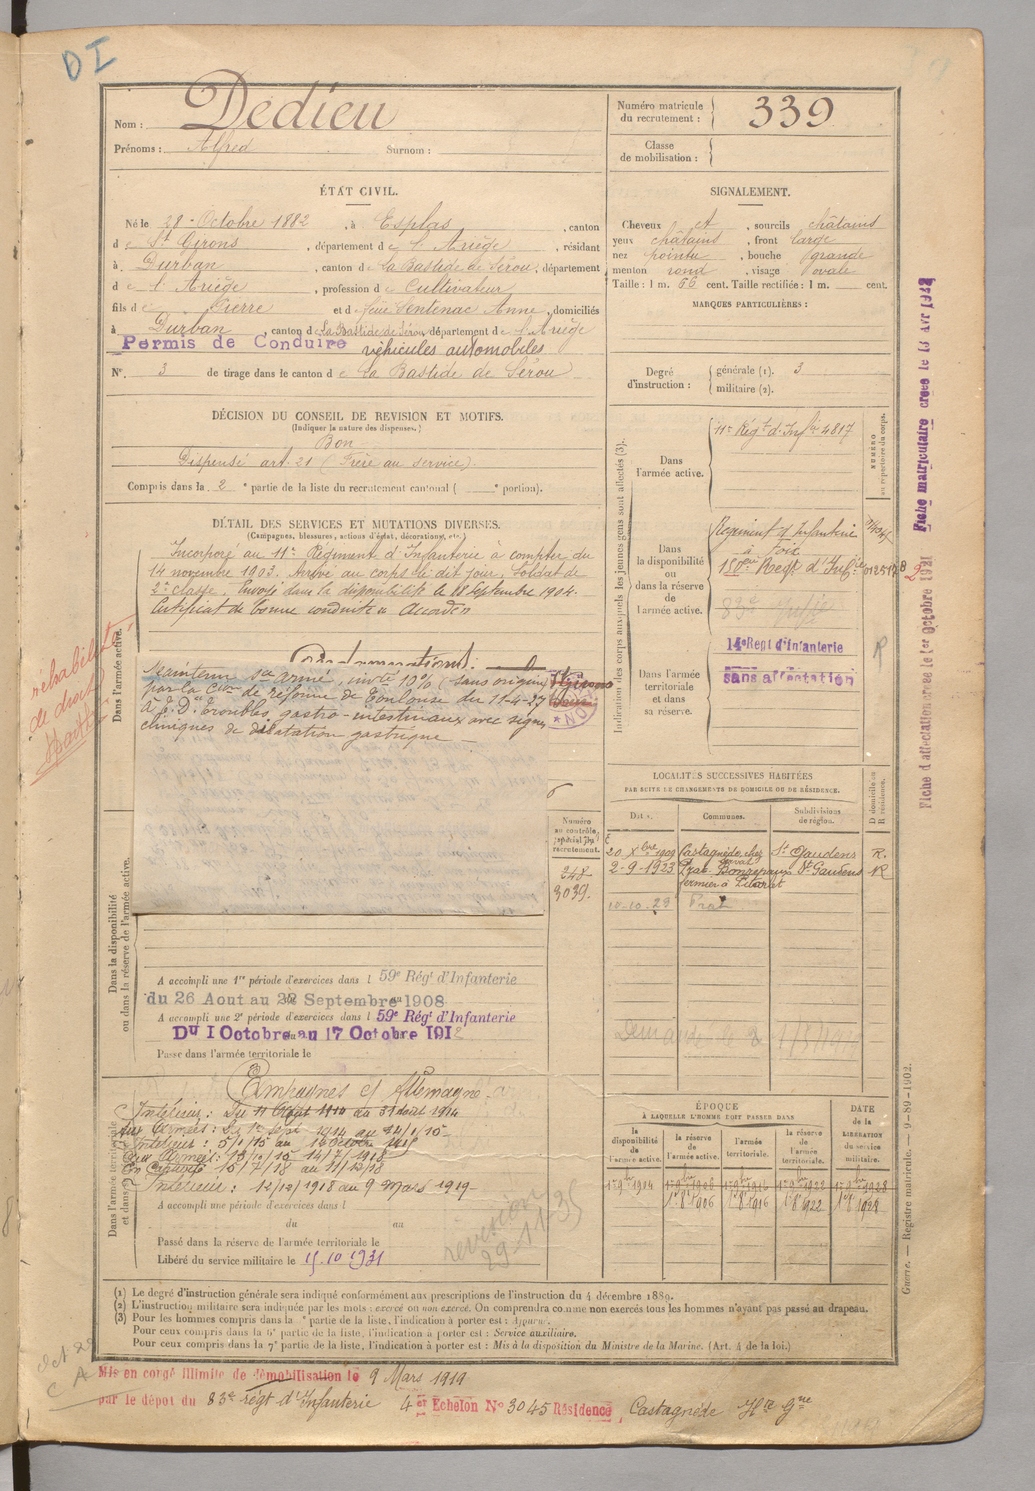 DI
Nom : Dedieu
Prénoms : Alfred Surnom :
Numéro matricule du recrutement : 339
Classe de mobilisation :
ÉTAT CIVIL.
Né le 28 Octobre 1882, à Esplas, canton
de St Girons, département de l'Ariège, résidant
à Durban, canton de La Bastide de Sérou, département
de l'Ariège, profession de Cultivateur
fils de Pierre et de feue Sentenac Anne, domiciliés
à Durban, canton de La Bastide de Sérou, département de l'Ariège
Permis de Conduire véhicules automobiles
N° 3 de tirage dans le canton de La Bastide de Sérou
SIGNALEMENT.
Cheveux et, sourcils châtains
yeux châtains, front large
nez pointu, bouche grande
menton rond, visage ovale
Taille : 1 m. 66 cent. Taille rectifiée : 1 m. cent.
MARQUES PARTICULIÈRES :
Degré d'instruction : générale (1). 3
militaire (2).
DÉCISION DU CONSEIL DE REVISION ET MOTIFS.
(Indiquer la nature des dispenses.)
Bon
Dispensé art. 21 (Frère au service).
Compris dans la 2e partie de la liste du recrutement cantonal ( e portion).
DÉTAIL DES SERVICES ET MUTATIONS DIVERSES.
(Campagnes, blessures, actions d'éclat, décorations, etc.)
Dans l'armée active.
Incorporé au 11e Régiment d'Infanterie à compter du
14 novembre 1903. Arrivé au corps le dit jour, Soldat de
2e classe. Envoyé dans la disponibilité le 18 Septembre 1904.
Certificat de bonne conduite accordé
Maintenu sce armé, invté 10% (sans origine)
par la Cion de réforme de Toulouse du 11-4-27
troubles gastro-intestinaux avec signes
cliniques de dilatation gastrique
réhabilité
de droit
Indication des corps auxquels les jeunes gens sont affectés (3).
NUMÉRO au répertoire du corps.
Dans l'armée active.
11e Régt d'Infie 4817
Dans la disponibilité ou dans la réserve de l'armée active.
Régiment d'Infanterie
à Foix
Regt d'Infie
Dans l'armée territoriale et dans sa réserve.
14e Regt d'Infanterie
sans affectation
R
Fiche matriculaire creee le 13 Avr
Fiche d'affectation creee le 1er Octobre 1921
LOCALITÉS SUCCESSIVES HABITÉES
PAR SUITE DE CHANGEMENTS DE DOMICILE OU DE RÉSIDENCE.
Dates. Communes. Subdivisions de région. D domicile ou R résidence.
20 Xbre 1909 Castagnède, chez St Gaudens R.
2-9-1923 Prat-Bonrepaux St Gaudens R
fermier à
10-10-29 Prat
Numéro au contrôle spécial du recrutement.
248
3039.
Dans la disponibilité ou dans la réserve de l'armée active.
A accompli une 1re période d'exercices dans l 59e Régt d'Infanterie
du 26 Aout au 22 Septembre 1908
A accompli une 2e période d'exercices dans l 59e Régt d'Infanterie
Du 1 Octobre au 17 Octobre 1912
Passé dans l'armée territoriale le
Campagnes c/ Allemagne
Intérieur : Du 11 Aout 1914 au 31 aout 1914
Aux Armées : Du 1er Sept 1914 au
Intérieur : 5/1/15 au
Aux Armées : 14/7/1918
En Captivité 15/7/18 au 11/12/18
Intérieur : 12/12/1918 au 9 Mars 1919
A accompli une période d'exercices dans l
du au
Passé dans la réserve de l'armée territoriale le
Libéré du service militaire le 15.10.1931
révision
29-11-35
ÉPOQUE
À LAQUELLE L'HOMME DOIT PASSER DANS
la disponibilité de l'armée active. la réserve de l'armée active. l'armée territoriale. la réserve de l'armée territoriale.
DATE de la LIBÉRATION du service militaire.
1er 9bre 1904 1er 9bre 1906 1er 9bre 1916 1er 9bre 1922 1er 9bre 1928
1er 8 1906 1er 8 1916 1er 8 1922 1er 8 1928
Guerre. — Registre matricule. — 9-89-1902.
(1) Le degré d'instruction générale sera indiqué conformément aux prescriptions de l'instruction du 4 décembre 1889.
(2) L'instruction militaire sera indiquée par les mots : exercé ou non exercé. On comprendra comme non exercés tous les hommes n'ayant pas passé au drapeau.
(3) Pour les hommes compris dans la e partie de la liste, l'indication à porter est :
Pour ceux compris dans la 5e partie de la liste, l'indication à porter est : Service auxiliaire.
Pour ceux compris dans la 7e partie de la liste, l'indication à porter est : Mis à la disposition du Ministre de la Marine. (Art. 4 de la loi.)
Mis en congé illimité de démobilisation le 9 Mars 1919
par le dépot du 83e régt d'Infanterie 4e Echelon N° 3045 Résidence, Castagnède Hte Gne